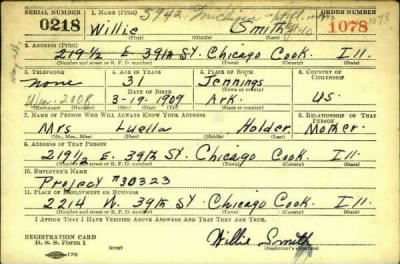 SERIAL NUMBER 1. NAME (Print) 5942 ORDER NUMBER
0218 Willie Smith 1078
(First) (Middle) (Last)
2. ADDRESS (Print)
219½ E. 39th St. Chicago Cook Ill.
(Number and street or R. F. D. number) (Town) (County) (State)
3. TELEPHONE 4. AGE IN YEARS 5. PLACE OF BIRTH 6. COUNTRY OF CITIZENSHIP
none 31 Jennings
DATE OF BIRTH
2308 3-19-1909 Ark. U.S.
(Exchange) (Number) (Mo.) (Day) (Yr.) (State or country)
7. NAME OF PERSON WHO WILL ALWAYS KNOW YOUR ADDRESS 8. RELATIONSHIP OF THAT PERSON
Mrs Luella Holder Mother.
(Mr., Mrs., Miss) (First) (Middle) (Last)
9. ADDRESS OF THAT PERSON
219½ E. 39th St. Chicago Cook. Ill.
(Number and street or R. F. D. number) (Town) (County) (State)
10. EMPLOYER'S NAME
Project #30323
11. PLACE OF EMPLOYMENT OR BUSINESS
2214 W. 39th St. Chicago Cook. Ill.
(Number and street or R. F. D. number) (Town) (County) (State)
I AFFIRM THAT I HAVE VERIFIED ABOVE ANSWERS AND THAT THEY ARE TRUE.
REGISTRATION CARD
D. S. S. Form 1 Willie Smith
16-170 (Registrant's signature)